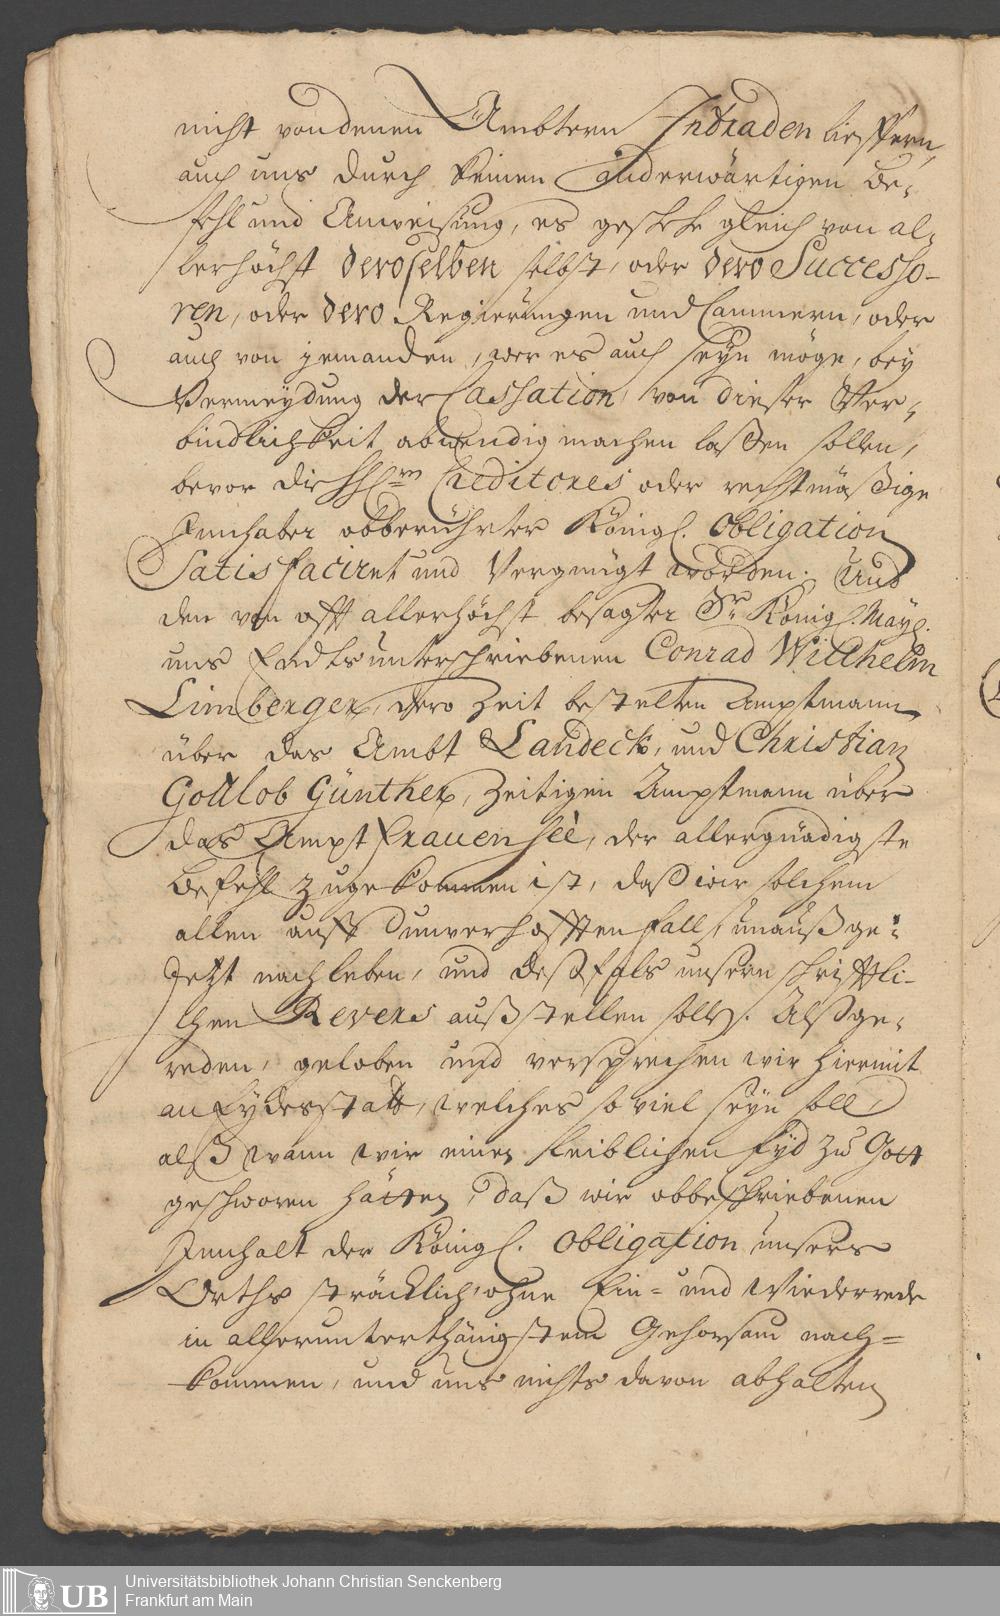 nicht von denen Ambtern Intraden lieffern,
auch uns durch keinen anderwärtigen Be-
fehl und Anweisung, es geschehe gleich von al-
lerhöchst deroselben selbst, oder dero Successo-
ren, oder dero Regierungen und Cammern, oder
auch von jemanden, wer es auch seyn möge, bey
Vermeydung der Cassation, von dieser Ver-
bindlichkeit abwendig machen laßen sollen,
bevor die Creditores oder rechtmäßige
Innhaber obberührter Königl. Obligation
Satisfaciret und Vergnügt worden. Und
den von offt allerhöchst besagter Sr. Königl. May.
uns Endts unterschriebenen Conrad Willhelm
Limberger, dero Zeit bestelten Amptmann
über das Ambt Landeck, und Christian
Gottlob Günther, Zeitigen Amptmann über
das Ampt Frauensee, der allergnädigste
Befehl zugekommen ist, daß wir solchem
allen auff unverhofften Fall, unaußge-
setzt nachleben, und deßfals unsern schrifftli-
chen Revers außstellen solln. Alß ge-
reden, geloben und versprechen wir hiermit
an Eydesstatt, welches so viel seyn soll,
alß wann wir einen Leiblichen Eyd zu Gott
geschworen hätten, daß wir obbeschriebenen
Innhalt der Königl. Obligation unsers
Orths sträcklich, ohne Ein- und Wiederrede
in allerunterthänigstem Gehorsam nach-
kommen, und uns nichts davon abhalten
UB
Universitätsbibliothek Johann Christian Senckenberg
Frankfurt am Main